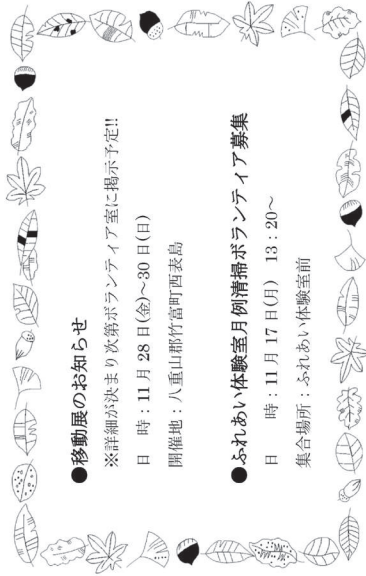 ●移動展のお知らせ
※詳細が決まり次第ボランティア室に掲示予定!!
日　時：11 月 28 日(金)～30 日(日)
開催地：八重山郡竹富町西表島
●ふれあい体験室月例清掃ボランティア募集
日　時：11 月 17 日(月)　13：20～
集合場所：ふれあい体験室前